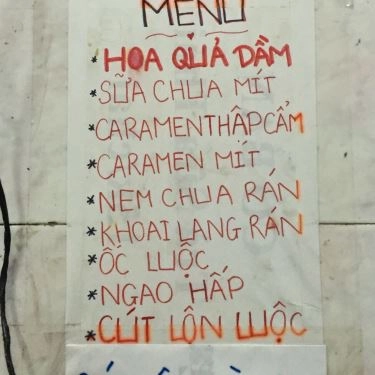 MENU
*HOA QUẢ DẦM
*SỮA CHUA MÍT
*CARAMEN THẬP CẨM
*CARAMEN MÍT
*NEM CHUA RÁN
*KHOAI LANG RÁN
*ỐC LUỘC
*NGAO HẤP
*CÚT LỘN LUỘC